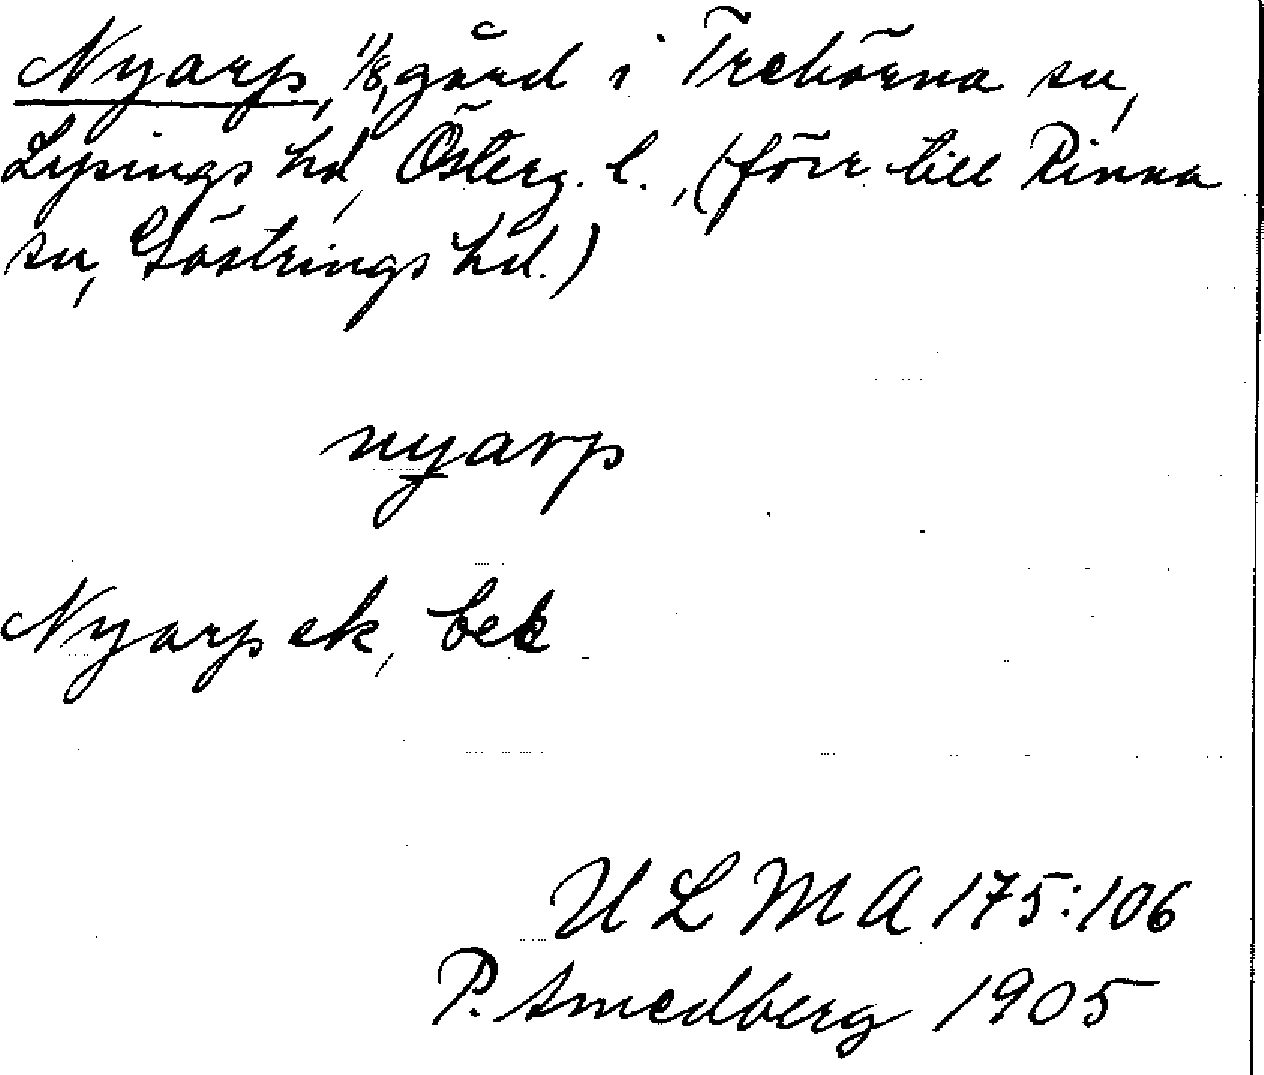 Nyarp, 1/8 gård i Trehörna sn,
Lysings hd, Österg. l., (förr till Rinna
sn, Göstrings hd.)
nyarp
Nyarp ek, bek
ULMA 175:106
P. Smedberg 1905